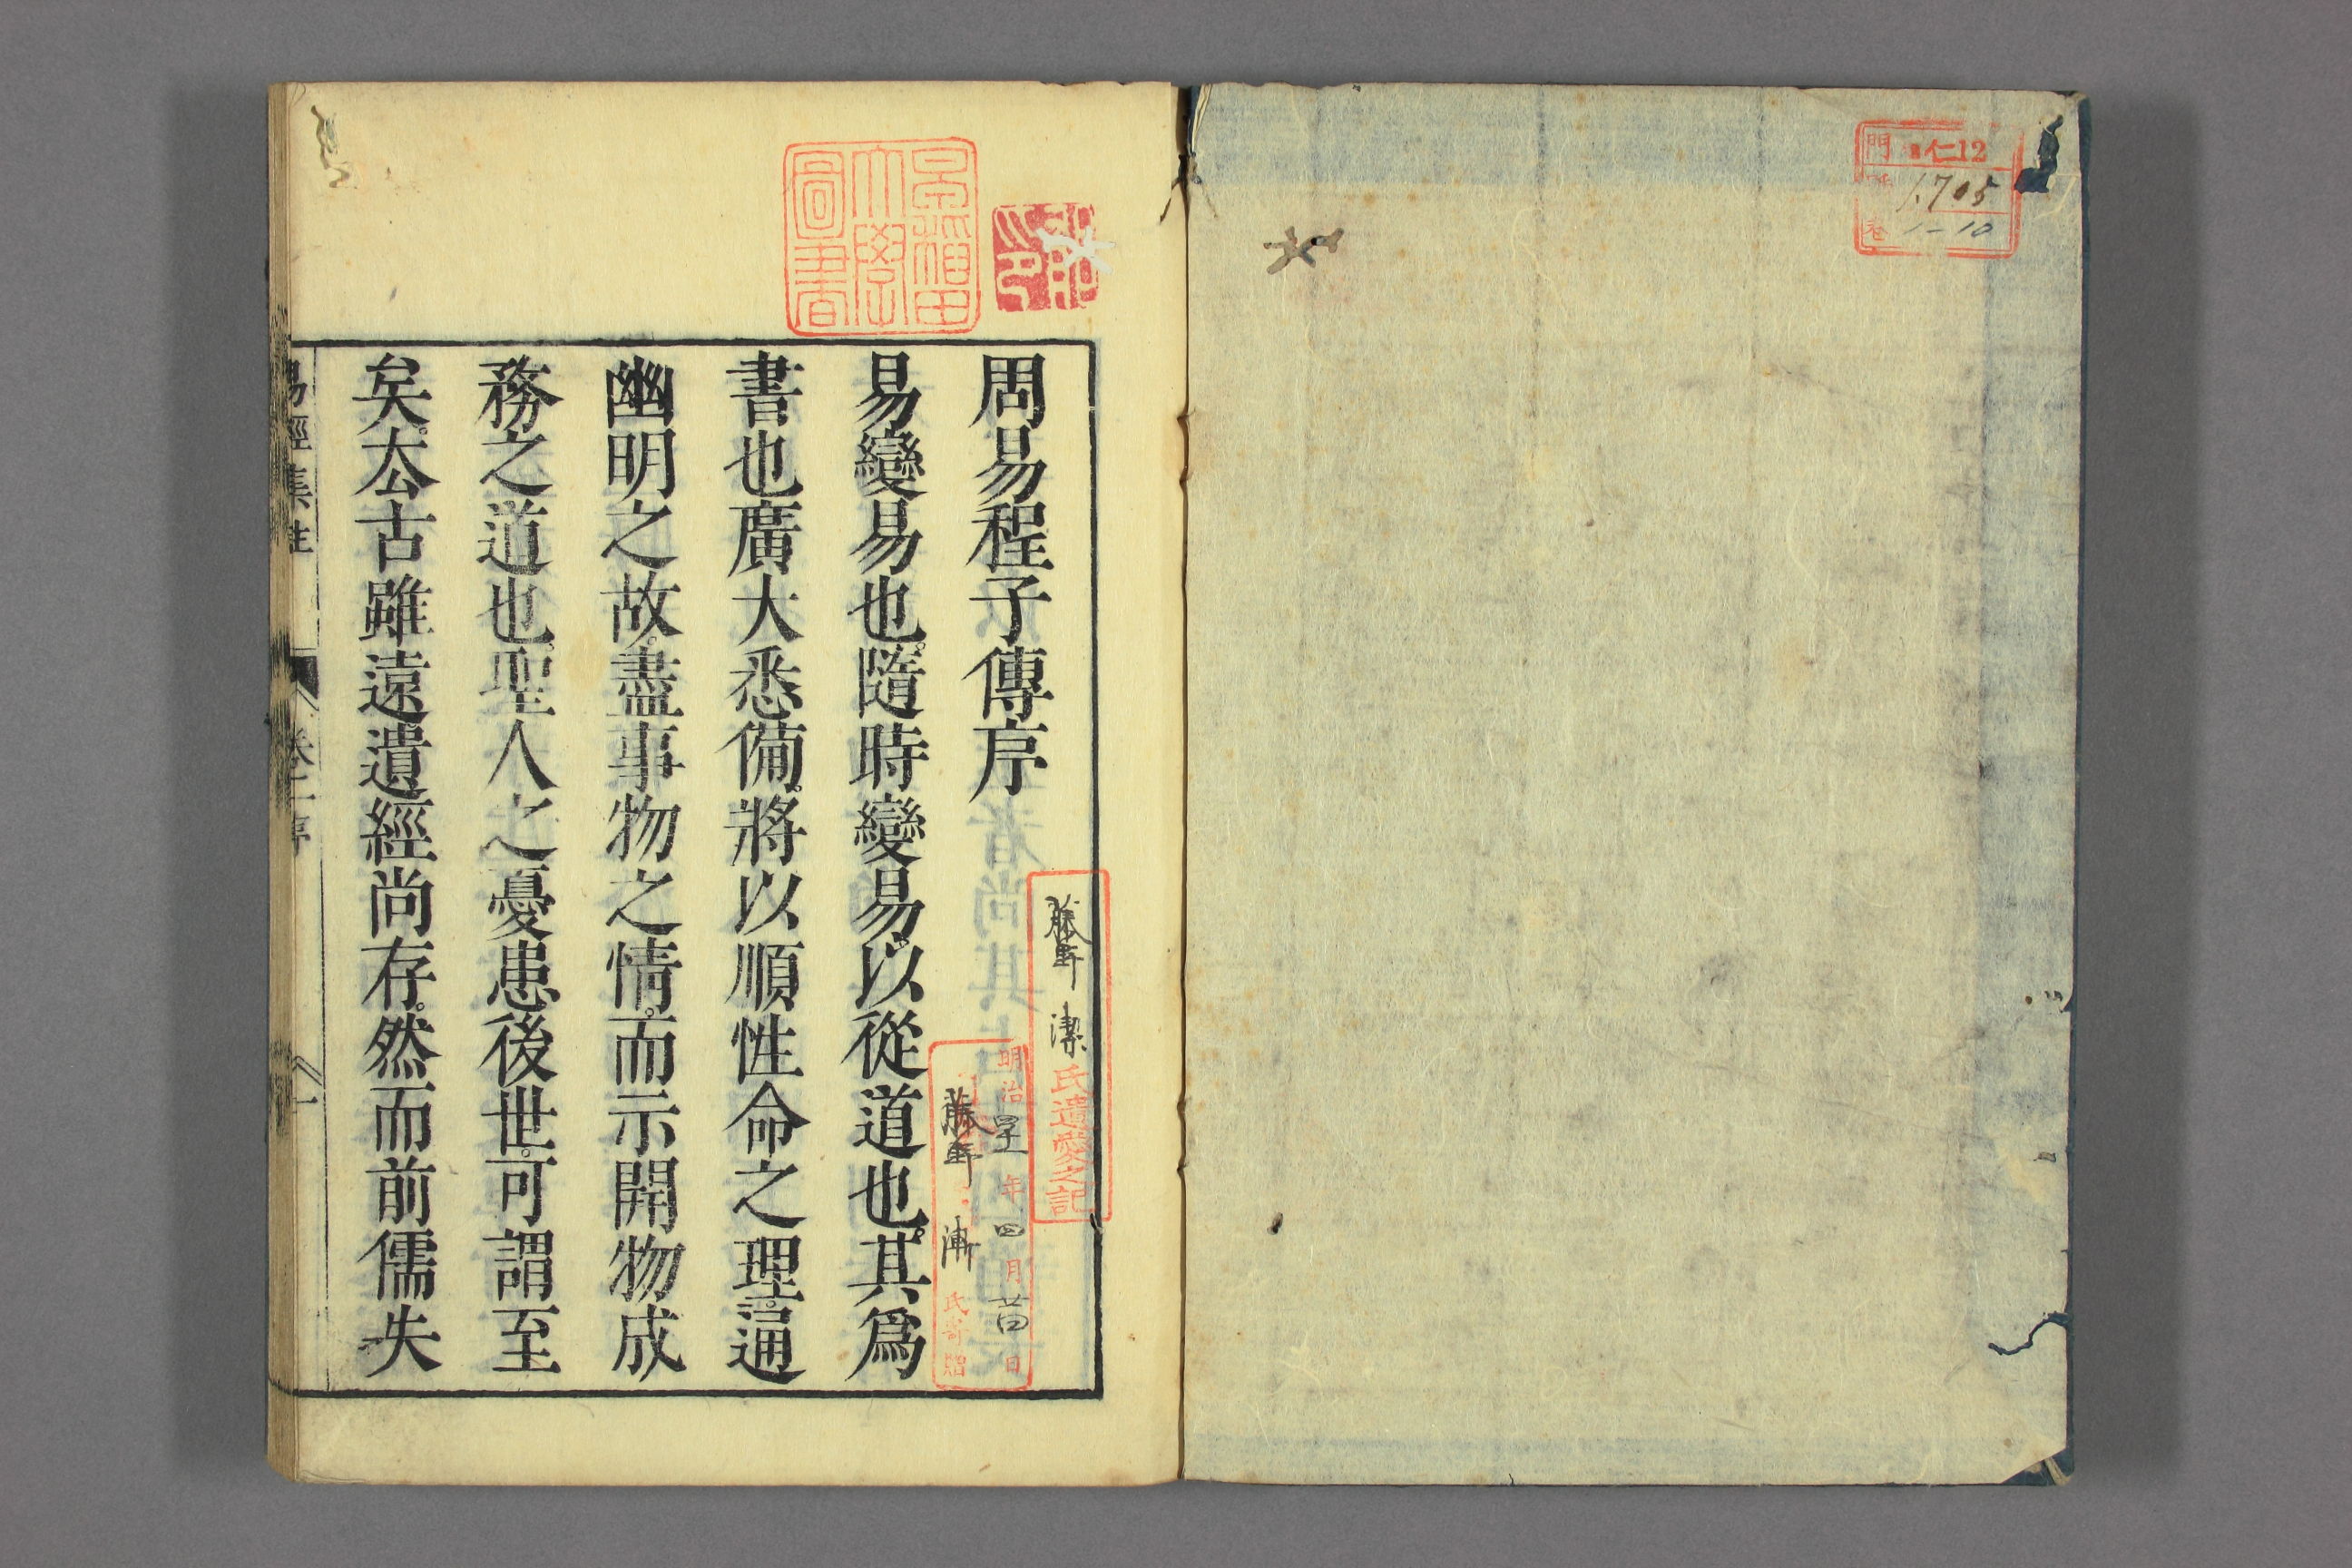 門 仁12
號 1705
卷 1-10
早稲田
大學
圖書
周易程子傳序
易變易也。隨時變易。以從道也。其爲
書也廣大悉備。將以順性命之理。通
幽明之故。盡事物之情。而示開物成
務之道也。聖人之憂患後世。可謂至
矣。去古雖遠遺經尚存。然而前儒失
氏遺愛之記
明治 年四月 日
氏寄贈
易經集註 卷之一序 一